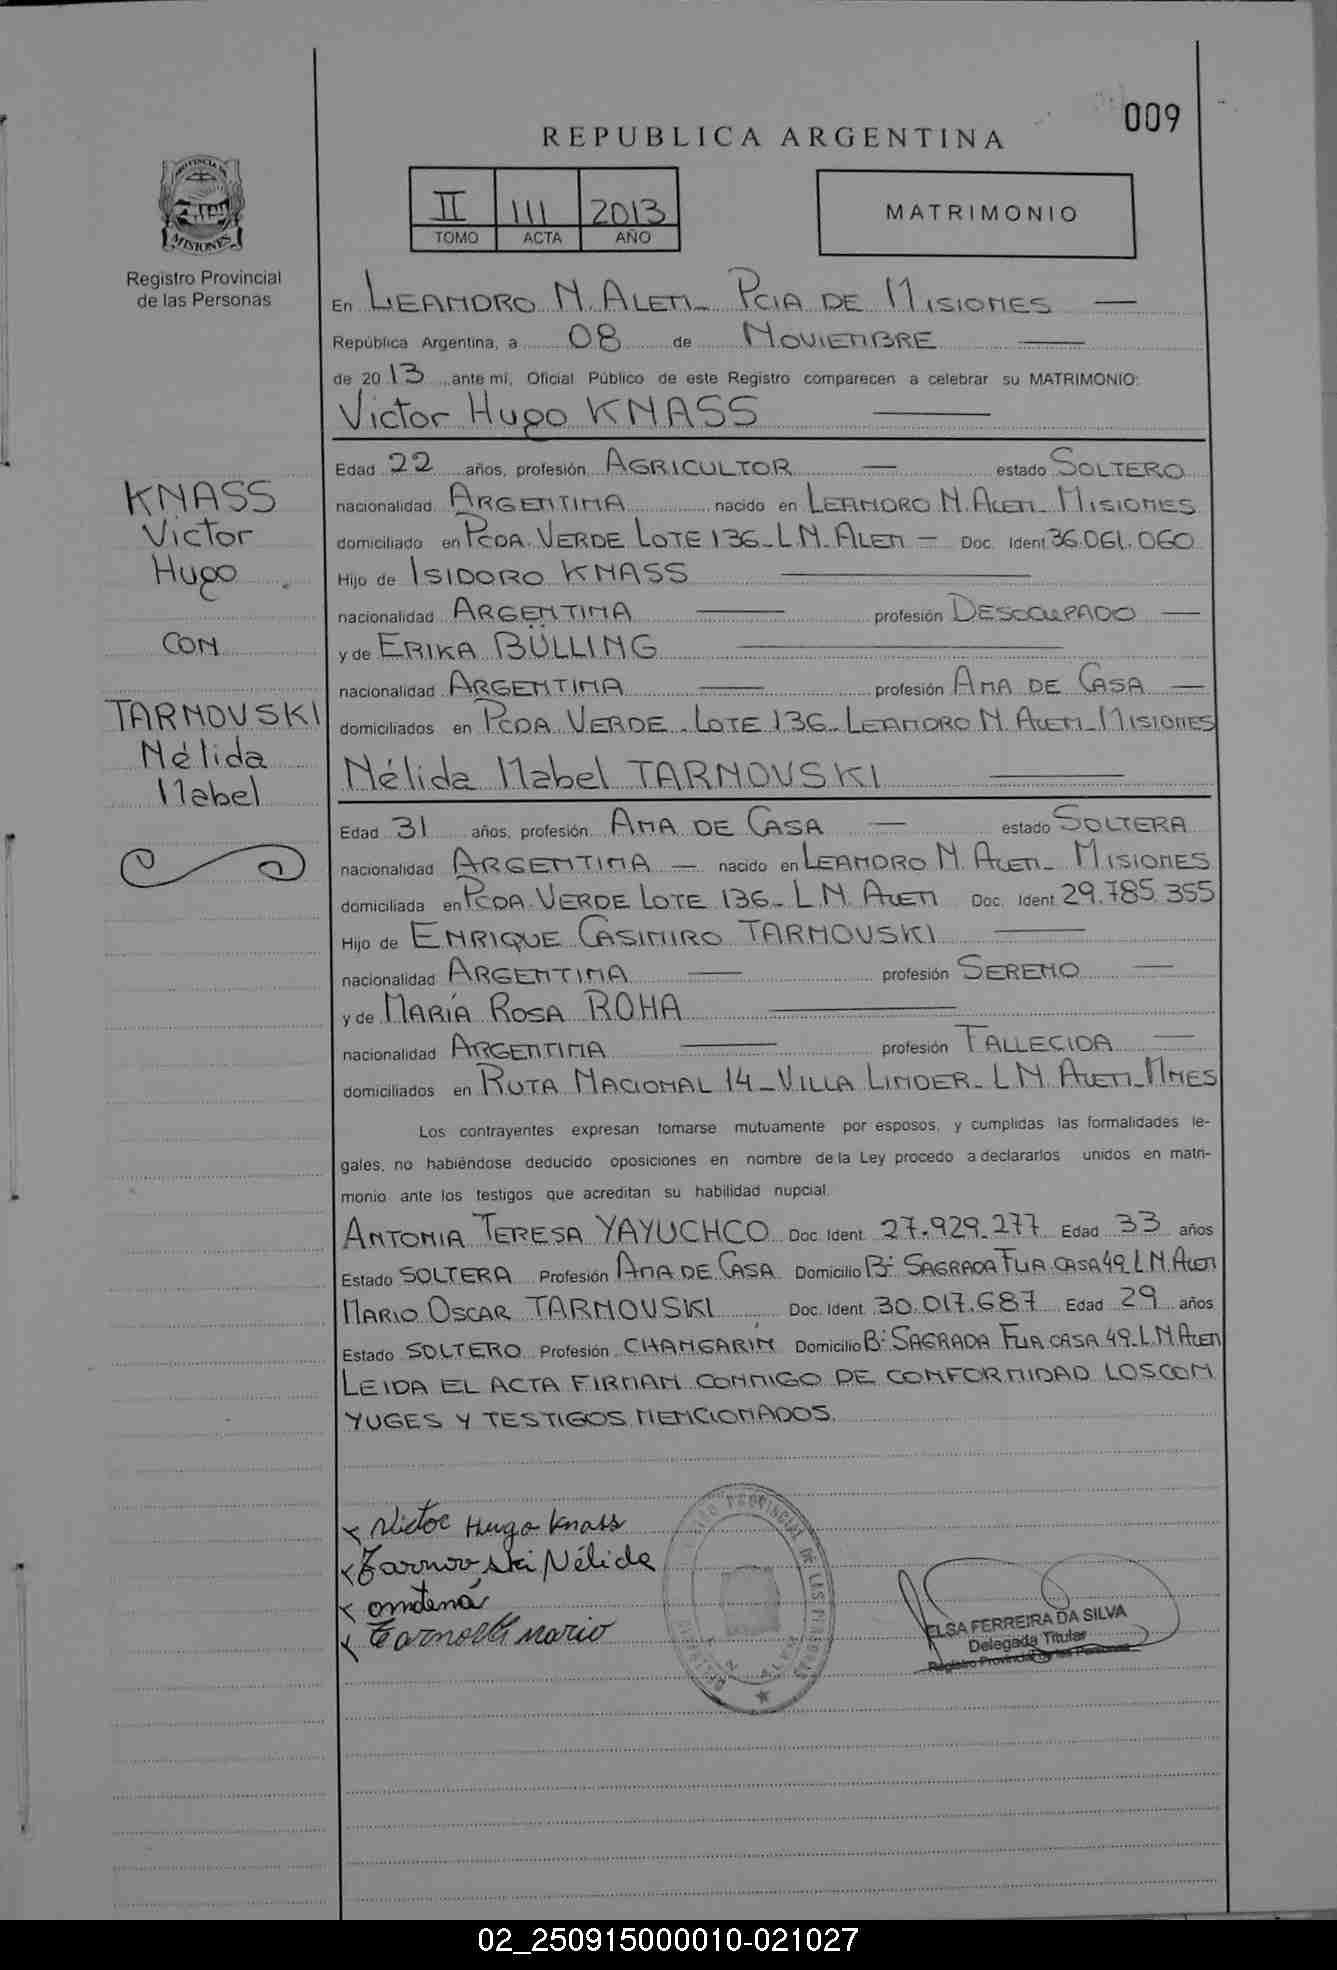 009
REPUBLICA ARGENTINA
PROVINCIA DE
MISIONES
Registro Provincial
de las Personas
II 111 2013
TOMO ACTA AÑO
MATRIMONIO
En LEANDRO N. ALEM_ PCIA DE MISIONES —
República Argentina, a 08 de NOVIEMBRE —
de 2013 ante mí, Oficial Público de este Registro comparecen a celebrar su MATRIMONIO:
Victor Hugo KNASS —
KNASS
Victor
Hugo
CON
TARNOVSKI
Nélida
Mabel
Edad 22 años, profesión AGRICULTOR — estado SOLTERO
nacionalidad ARGENTINA nacido en LEANDRO N. ALEM_ MISIONES
domiciliado en PCDA. VERDE LOTE 136_ L.N. ALEM — Doc. Ident. 36.061.060
Hijo de ISIDORO KNASS —
nacionalidad ARGENTINA — profesión DESOCUPADO —
y de ERIKA BÜLLING —
nacionalidad ARGENTINA — profesión AMA DE CASA —
domiciliados en PCDA. VERDE _ LOTE 136_ LEANDRO N. ALEM_ MISIONES
Nélida Mabel TARNOVSKI —
Edad 31 años, profesión AMA DE CASA — estado SOLTERA
nacionalidad ARGENTINA — nacido en LEANDRO N. ALEM_ MISIONES
domiciliada en PCDA. VERDE LOTE 136_ L.N. ALEM Doc. Ident. 29.785.355
Hijo de ENRIQUE CASIMIRO TARNOVSKI —
nacionalidad ARGENTINA — profesión SERENO —
y de MARÍA ROSA ROHA —
nacionalidad ARGENTINA — profesión FALLECIDA —
domiciliados en RUTA NACIONAL 14_ VILLA LINDER_ L N. ALEM_ MNES
Los contrayentes expresan tomarse mutuamente por esposos, y cumplidas las formalidades le-
gales, no habiéndose deducido oposiciones en nombre de la Ley procedo a declararlos unidos en matri-
monio ante los testigos que acreditan su habilidad nupcial.
ANTONIA TERESA YAYUCHCO Doc. Ident. 27.929.277 Edad 33 años
Estado SOLTERA Profesión AMA DE CASA Domicilio B: SAGRADA FLIA. CASA 49_ L.N. ALEM
MARIO OSCAR TARNOVSKI Doc. Ident. 30.017.687 Edad 29 años
Estado SOLTERO Profesión CHANGARÍN Domicilio B: SAGRADA FLIA. CASA 49_ L.N. ALEM
LEIDA EL ACTA FIRMAN CONMIGO DE CONFORMIDAD LOS CON
YUGES Y TESTIGOS MENCIONADOS.
x Victor Hugo Knass
x Tarnovski Nélida
x
x mario
PROVINCIAL DE LAS PERSONAS
ELSA FERREIRA DA SILVA
Delegada Titular
Registro Provincial de las Personas
02_250915000010-021027